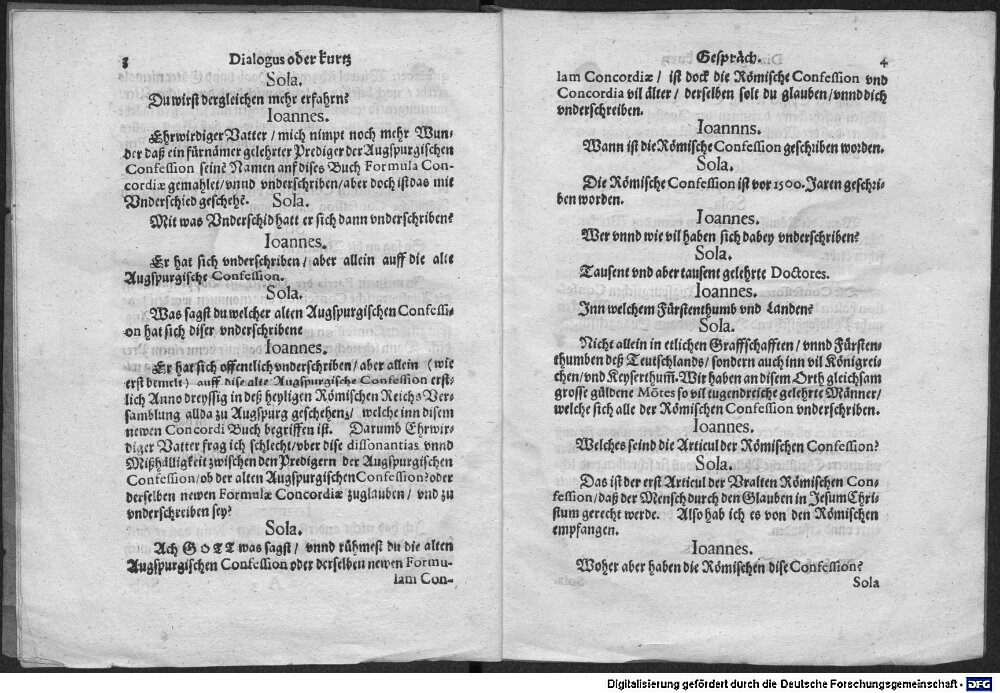 3 Dialogus oder kurtz
Sola.
Du wirst dergleichen mehr erfahrn?
Ioannes.
Ehrwirdiger Vatter / mich nimpt noch mehr Wun-
der daß ein fürnämer gelehrter Prediger der Augspurgischen
Confession seine Namen auf dises Buch Formula Con-
cordiæ gemahlet / vnnd vnderschriben / aber doch ist das mit
Vnderschied geschehe? Sola.
Mit was Vnderschid hatt er sich dann vnderschriben?
Ioannes.
Er hat sich vnderschriben / aber allein auff die alte
Augspurgische Confession.
Sola.
Was sagst du welcher alten Augspurgischen Confessi-
on hat sich diser vnderschribene
Ioannes.
Er hat sich offentlich vnderschriben / aber allein (wie
erst bemelt) auff dise alte Augspurgische Confession erst-
lich Anno dreyssig in deß heyligen Römischen Reichs Ver-
samblung allda zu Augspurg geschehenz / welche inn disem
newen Concordi Buch begriffen ist. Darumb Ehrwir-
diger Vatter frag ich schlecht / vber dise dissonantias vnnd
Mißhälligkeit zwischen den Predigern der Augspurgischen
Confession / ob der alten Augspurgischen Confession? oder
derselben newen Formulæ Concordiæ zuglauben / vnd zu
vnderschreiben sey?
Sola.
Ach GOTT was sagst / vnnd rühmest du die alten
Augspurgischen Confession oder derselben newen Formu-
lam Con-
Gespräch. 4
lam Concordiæ / ist dock die Römische Confession vnd
Concordia vil älter / derselben solt du glauben / vnnd dich
vnderschreiben.
Ioannns.
Wann ist die Römische Confession geschriben worden.
Sola.
Die Römische Confession ist vor 1500. Jaren geschri-
ben worden.
Ioannes.
Wer vnnd wie vil haben sich dabey vnderschriben?
Sola.
Tausent vnd aber tausent gelehrte Doctores.
Ioannes.
Inn welchem Fürstenthumb vnd Landen?
Sola.
Nicht allein in etlichen Graffschafften / vnnd Fürsten-
thumben deß Teutschlands / sondern auch inn vil Königrei-
chen / vnd Keyserthum̃. Wir haben an disem Orth gleichsam
grosse güldene Mõtes so vil tugendreiche gelehrte Männer /
welche sich alle der Römischen Confession vnderschriben.
Ioannes.
Welches seind die Articul der Römischen Confession?
Sola.
Das ist der erst Articul der Vralten Römischen Con-
fession / daß der Mensch durch den Glauben in Jesum Chri-
stum gerecht werde. Also hab ich es von den Römischen
empfangen.
Ioannes.
Woher aber haben die Römischen dise Confession?
Sola
Digitalisierung gefördert durch die Deutsche Forschungsgemeinschaft - DFG